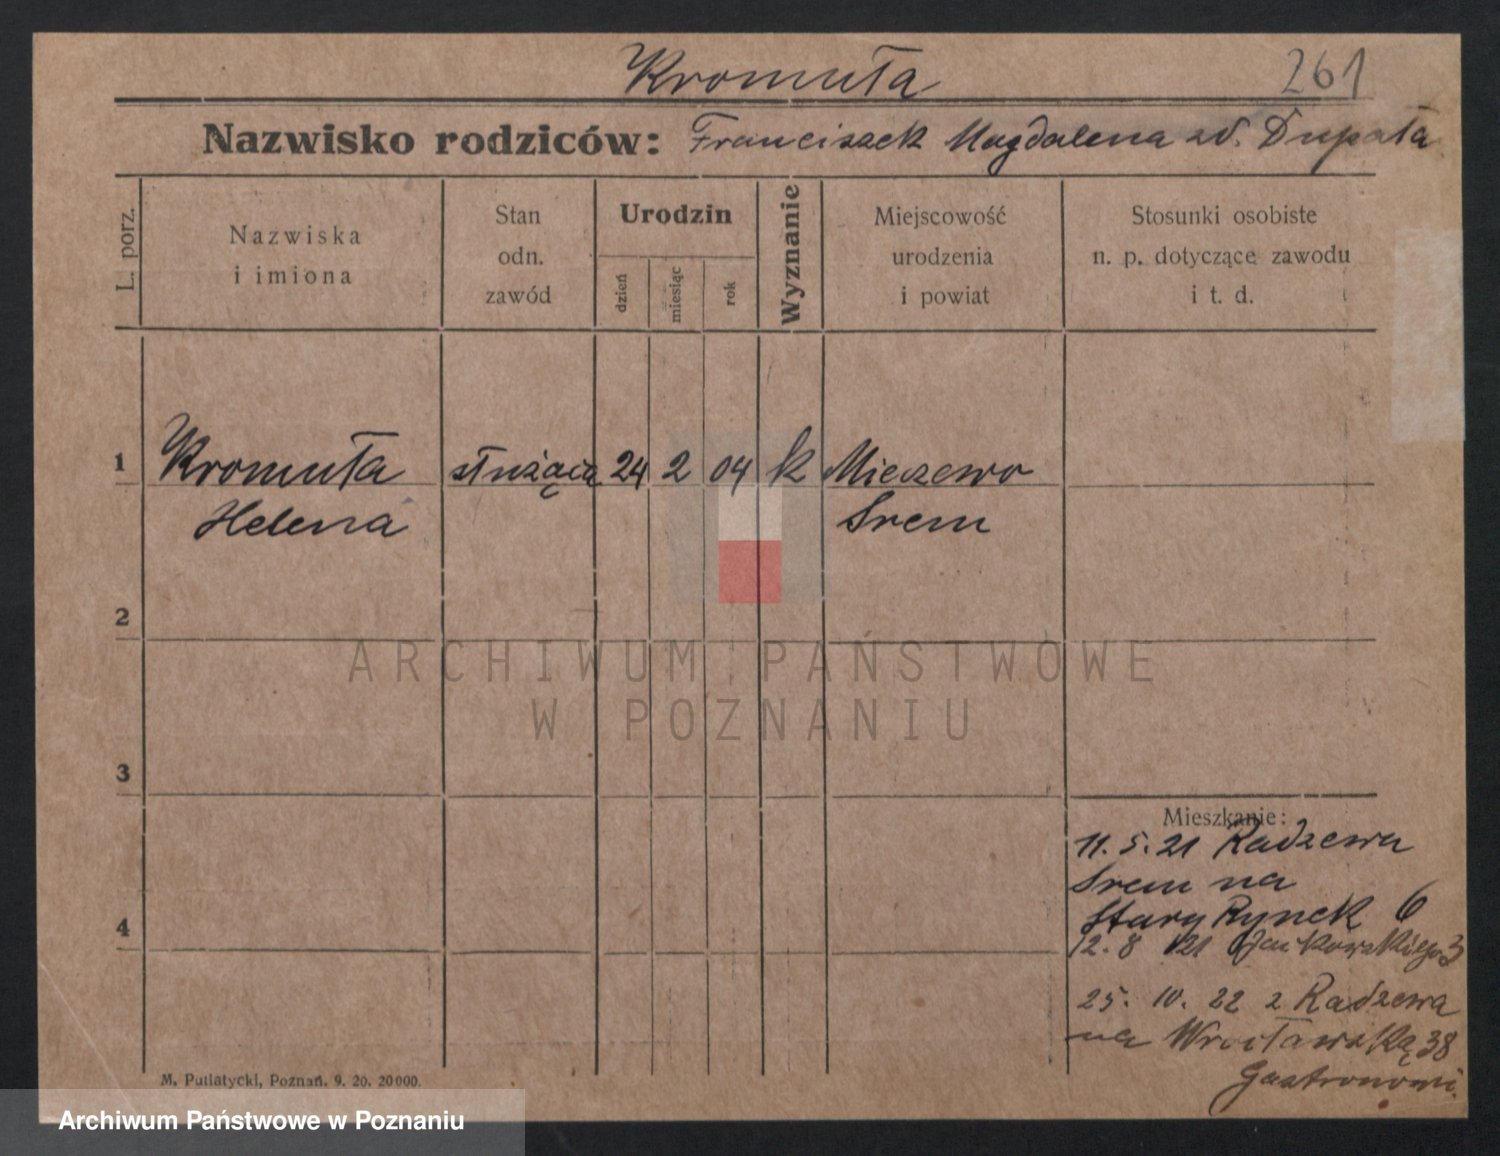 Kromuła
261
Nazwisko rodziców: Franciszek Magdalena zd. Dupała
L. porz.
Nazwiska
i imiona
Stan
odn.
zawód
Urodzin
dzień
miesiąc
rok
Wyznanie
Miejscowość
urodzenia
i powiat
Stosunki osobiste
n. p. dotyczące zawodu
i t. d.
1 Kromuła służąca 24 2 04 k Mieczewo
Helena Srem
2
ARCHIWUM PAŃSTWOWE
W POZNANIU
3
Mieszkanie:
11. 5. 21 Radzewa
Srem na
4 Stary Rynek 6
12. 8 21 Jackowskiego 3
25. 10. 22 z Radzewa
na Wrocławską 38
Gastronomi.
M. Putiatycki, Poznań. 9. 20. 20000.
Archiwum Państwowe w Poznaniu